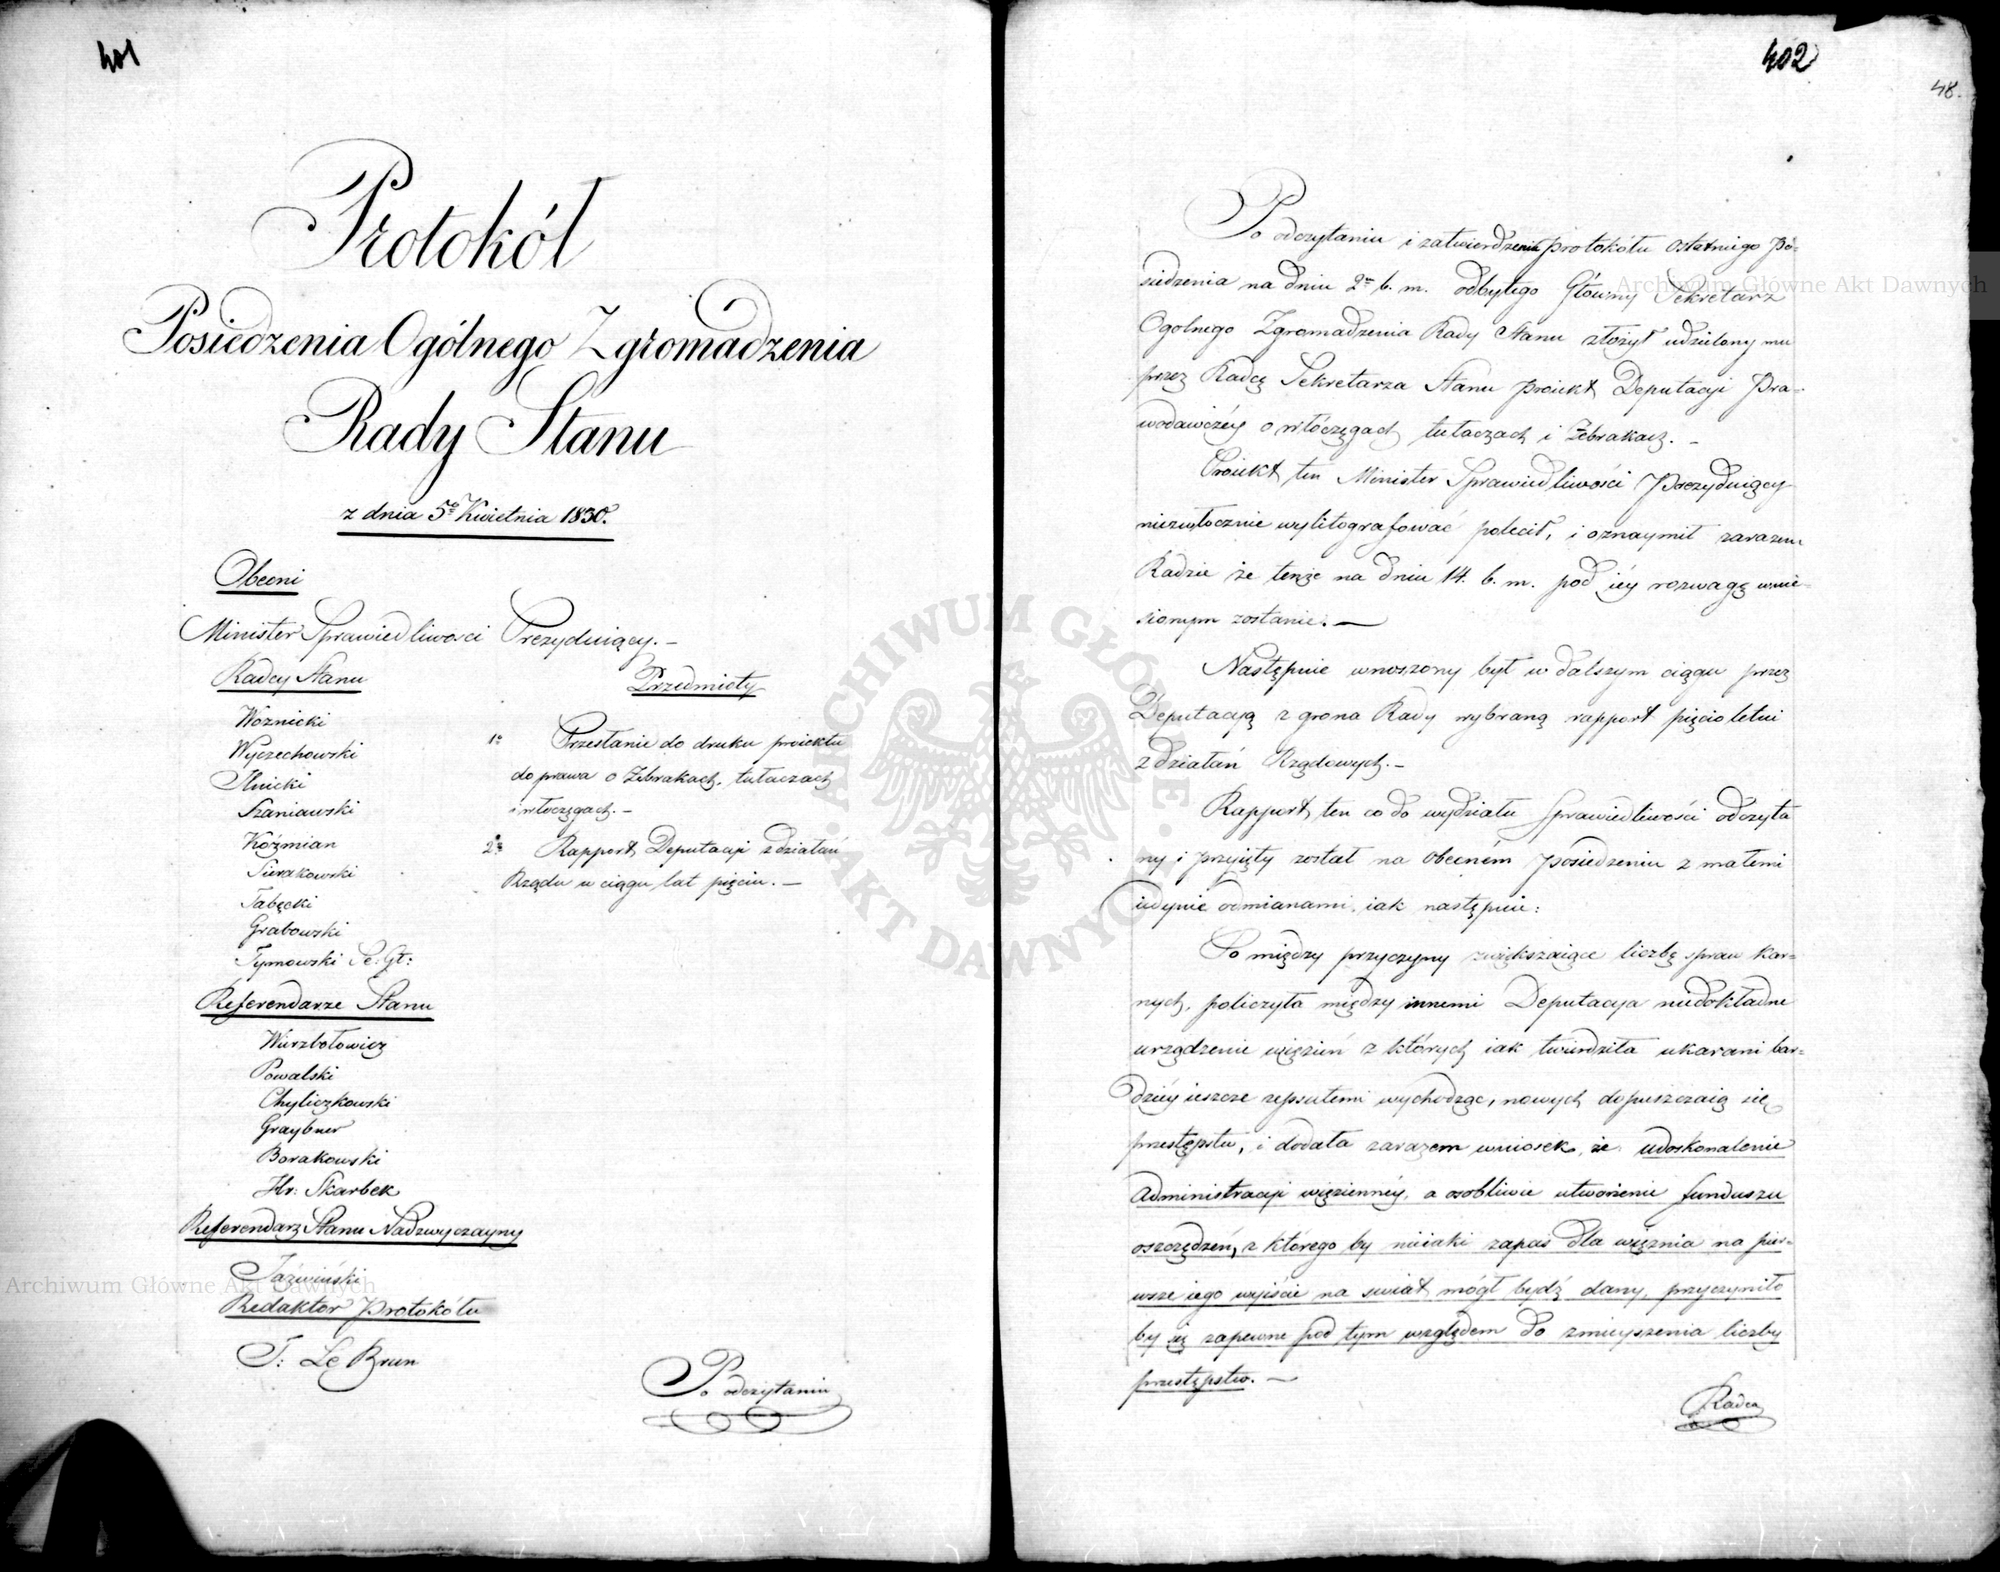 401
Protokół
Posiedzenia Ogólnego Zgromadzenia
Rady Stanu
z dnia 5go Kwietnia 1830.
Obecni
Minister Sprawiedliwości Prezyduiący. –
Radcy Stanu
Woznicki
Wyczechowski
Szaniawski
Koźmian
Sierakowski
Tabęcki
Grabowski
Tymowski Se: Gł:
Referendarze Stanu
Wierzbołowicz
Powalski
Chyliczkowski
Graybner
Borakowski
Hr: Skarbek
Referendarz Stanu Nadzwyczayny
Jaźwiński
Redaktor Protokółu
T: Le Brun
Przedmioty
1o Przesłanie do druku proiektu
do prawa o żebrakach, tułaczach
i włóczęgach. –
2o Rapport Deputacji z działań
Rządu w ciągu lat pięciu. –
Po odczytaniu
402
48.
Po odczytaniu i zatwierdzeniu protokółu ostatniego Po-
siedzenia na dniu 2m b. m. odbytego Główny Sekretarz
Ogolnego Zgromadzenia Rady Stanu złożył udzielony mu
przez Radcę Sekretarza Stanu proiekt Deputacji Pra-
wodawczéy o włóczęgach tułaczach i żebrakach. –
Proiekt ten Minister Sprawiedliwości Prezyduiący
niezwłocznie wylitografować polecił, i oznaymił zarazem
Radzie że tenże na dniu 14. b. m. pod iéy rozwagę wnie-
sionym zostanie. –
Następnie wnoszony był w dalszym ciągu przez
Deputacją z grona Rady wybraną rapport pięcioletni
z działań Rządowych. –
Rapport ten co do wydziału Sprawiedliwości odczyta
ny i przyięty został na obecném posiedzeniu z małemi
iedynie odmianami, iak następuie:
Po między przyczyny zwiększaiące liczbę spraw kar-
nych, policzyła między innemi Deputacya niedokładne
urządzenie więzień z których iak twierdziła ukarani bar-
dziéy ieszcze zepsutemi wychodząc, nowych dopuszczaią się
przestępstw, i dodała zarazem wniosek, że udoskonalenie
Administracji więziennéy, a osobliwie utworzenie funduszu
oszczędzeń, z którego by nieiaki zapas dla więznia na pier-
wsze iego wyiście na swiat mógł bydź dany, przyczyniło
by się zapewne pod tym względem do zmnieyszenia liczby
przestępstw. –
Radca
Archiwum Główne Akt Dawnych
Archiwum Główne Akt Dawnych
ARCHIWUM GŁÓWNE AKT DAWNYCH